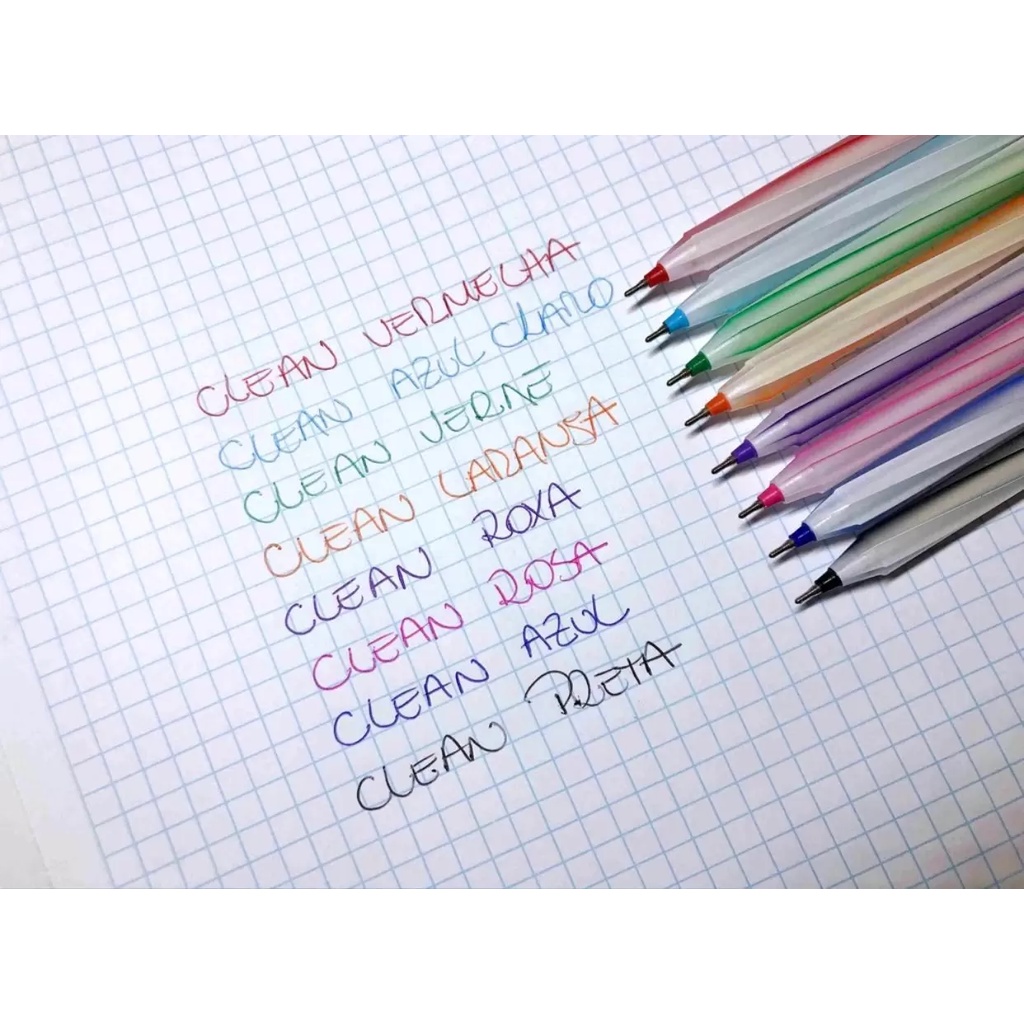 CLEAN VERMELHA
CLEAN AZUL CLARO
CLEAN VERDE
CLEAN LARANJA
CLEAN ROXA
CLEAN ROSA
CLEAN AZUL
CLEAN PRETA